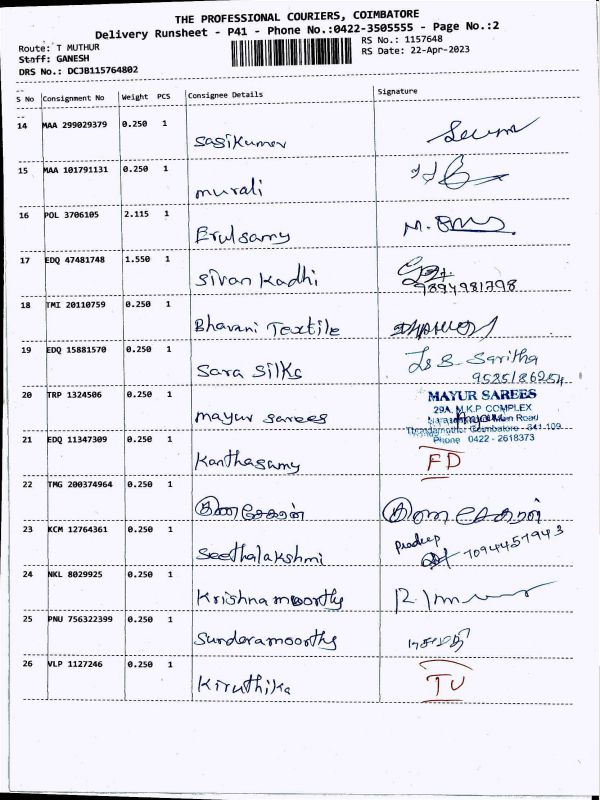 THE PROFESSIONAL COURIERS, COIMBATORE
Delivery Runsheet - P41 - Phone No.:0422-3505555 - Page No.:2
Route: T MUTHUR
RS No.: 1157648
Staff: GANESH
RS Date: 22-Apr-2023
DRS No.: DCJB115764802
S No Consignment No Weight PCS Consignee Details Signature
14 MAA 299029379 0.250 1
Sasikumar
15 MAA 101791131 0.250 1
murali
16 POL 3706105 2.115 1
Erulsamy M.
17 EDQ 47481748 1.550 1
Sivan Kadhi
9894981798
18 TMI 20110759 0.250 1
Bhavani Textile
19 EDQ 15881570 0.250 1
Sara Silks S. Saritha
20 TRP 1324506 0.250 1
mayur sarees
MAYUR SAREES
29A, M.K.P COMPLEX
Main Road
Coimbatore - 641 109
Phone 0422 - 2618373
21 EDQ 11347309 0.250 1
Kanthasamy FD
22 TMG 200374964 0.250 1
குணசேகரன் குணசேகரன்
23 KCM 12764361 0.250 1
Seethalakshmi Pradeep
7094457943
24 NKL 8029925 0.250 1
Krishna moorthy
25 PNU 756322399 0.250 1
Sunderamoorthy
26 VLP 1127246 0.250 1
Kiruthika TU